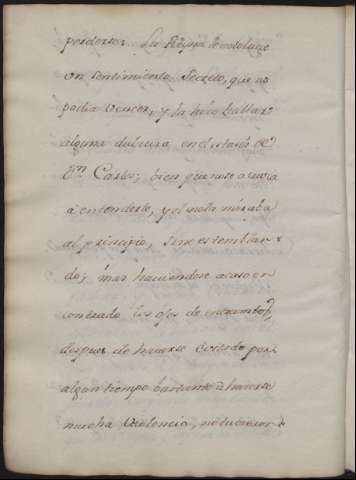 perderse: La Reyna
un sentimiento secreto, que no
podia vencer, y la hizo hallar
alguna dulzura en el
Dn Carlos; bien que no se atrevia
a entenderlo, y el no la miraba
al principio, sino es temblan-
do; mas haviendose acaso en
contrado los ojos de entrambos,
despues de haverse evitado por
algun tiempo bastante à haverse
mucha violencia, no tubieron